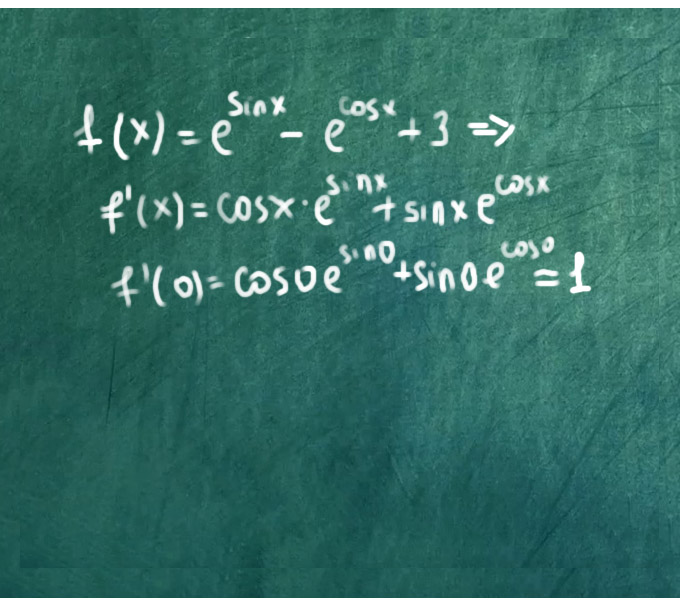 f(x) = e^sinx - e^cosx + 3 =>
f'(x) = cosx · e^sinx + sinx e^cosx
f'(0) = cos0 e^sin0 + sin0 e^cos0 = 1